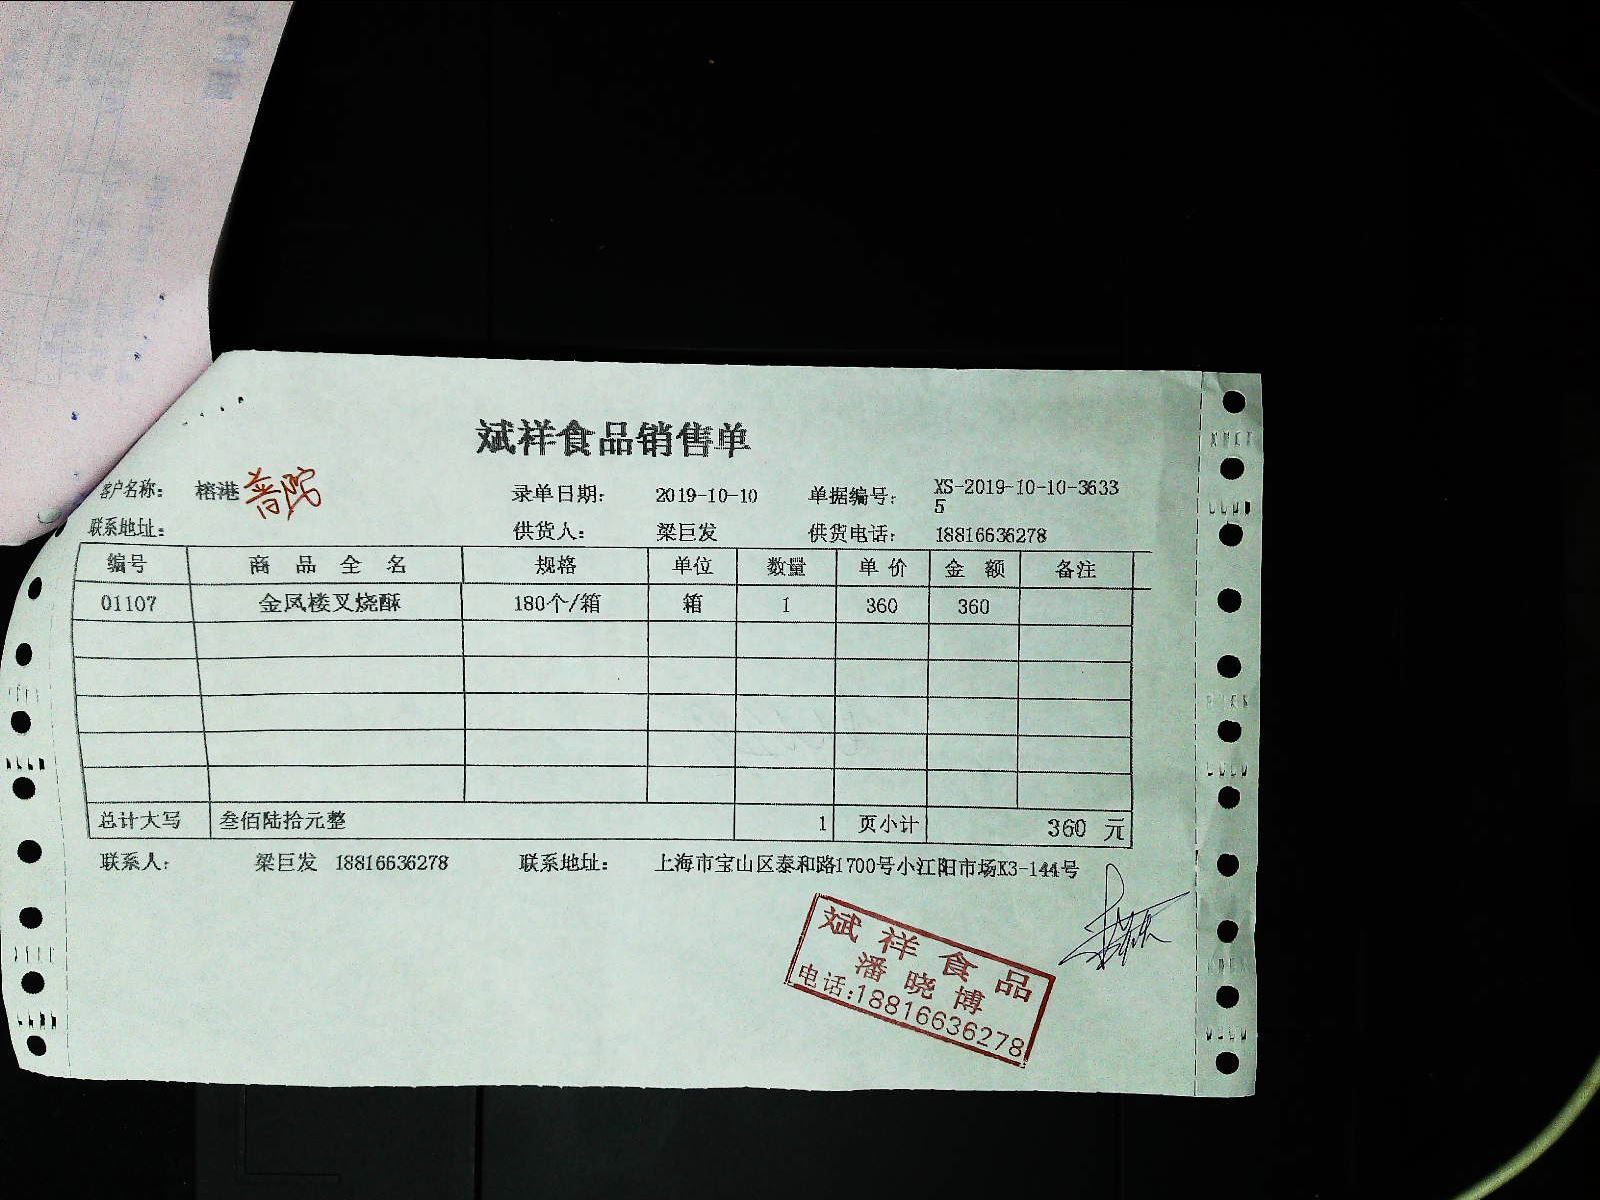 斌祥食品销售单
客户名称： 榕港 普陀 录单日期： 2019-10-10 单据编号： XS-2019-10-10-3633
5
联系地址： 供货人： 梁巨发 供货电话： 18816636278
编号 商品全名 规格 单位 数量 单价 金额 备注
01107 金凤楼叉烧酥 180个/箱 箱 1 360 360
总计大写 叁佰陆拾元整 1 页小计 360 元
联系人： 梁巨发 18816636278 联系地址： 上海市宝山区泰和路1700号小江阳市场K3-144号
斌祥食品
潘晓博
电话:18816636278